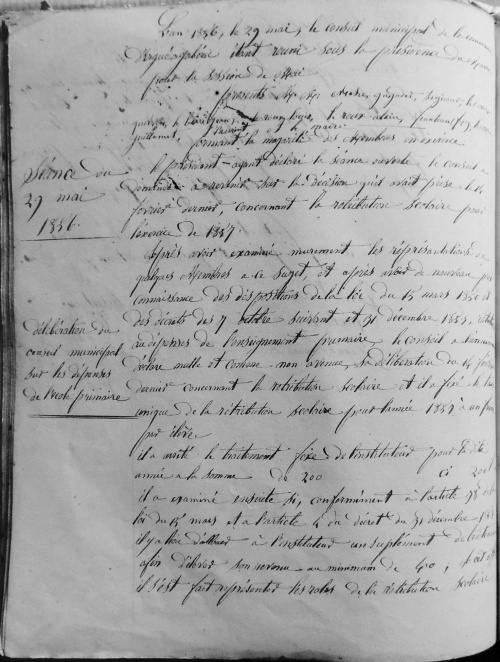 L'an 1856, le 29 mai, le conseil municipal de la commune
d'Ergué-gabéric étant réuni sous la présidence du maire
pour la session de Mai
présents M.M.
formant la majorité des Membres en exercice
Séance du
29 mai
1856.
le président ayant déclaré la séance ouverte le conseil a
demandé à revenir sur la décision qu'il avait prise le 14
février dernier, concernant la rétribution scolaire pour
l'exercice de 1857
Après avoir examiné murement les réprésentations de
quelques Membres a ce sujet, et après avoir de nouveau pris
connaissance des dispositions de la loi du 15 mars 1850 et
des décrets des 7 octobre suivant et 31 décembre 1853,
délibération du
conseil municipal
sur les dépenses
de l'école primaire
aux dépenses de l'enseignement primaire, le conseil a
déclaré nulle et comme non avenue, sa délibération du 14 février
dernier concernant la rétribution scolaire et il a fixé le taux
unique de la rétribution scolaire pour l'année 1857 à un franc
par élève
il a arrêté le traitement fixe de l'instituteur pour la dite
année a la somme de 200 ci 200
il a examiné ensuite si, conformément à l'article 38 de la
loi du 15 mars et a l'article 4 du décret du 31 décembre 1853
il y a lieu d'allouer à l'instituteur un supplément de traitement
afin d'élever son revenu au minimum de 600;
il s'est fait représenter les roles de la rétribution scolaire